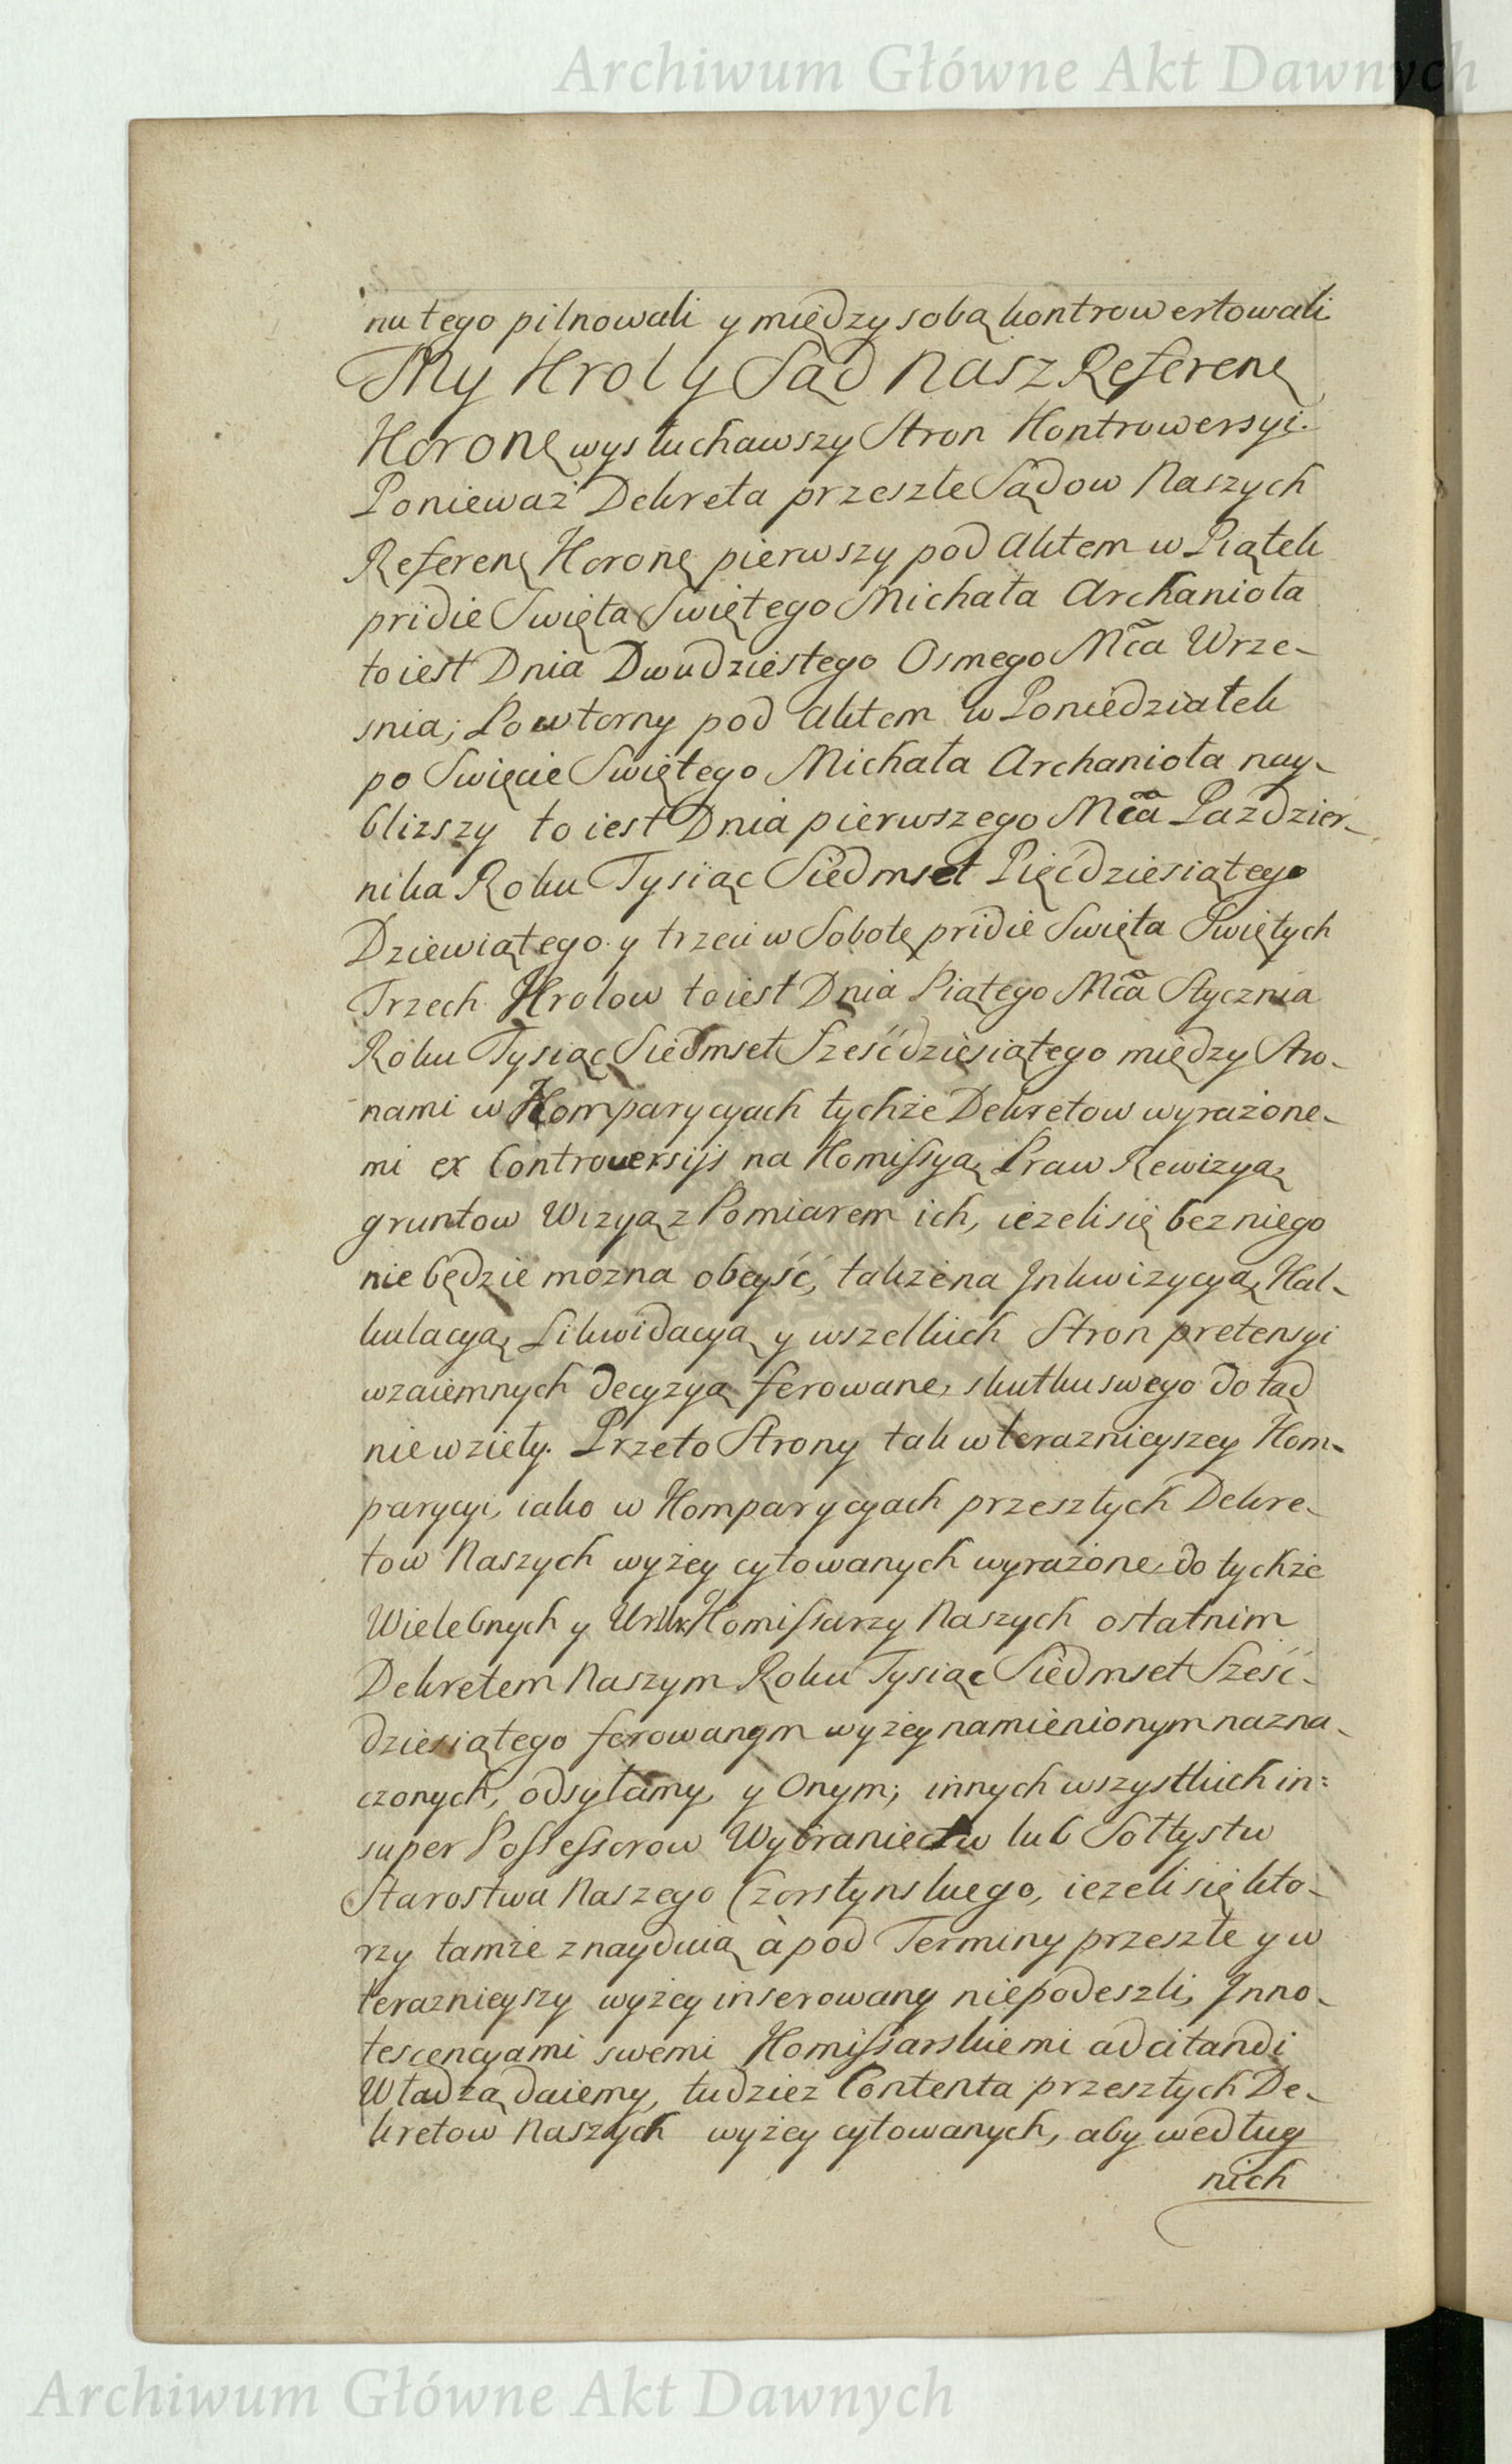 Archiwum Główne Akt Dawnych
nu tego pilnowali y między sobą kontrowertowali
My Krol y Sąd Nasz Referenę
Koronę wysłuchawszy Stron Kontrowersyi.
Ponieważ Dekreta przeszłe Sądow Naszych
Referenę Koronę pierwszy pod Aktem w Piątek
pridie Swięta Swiętego Michała Archanioła
to iest Dnia Dwudziestego Osmego Mca Wrze-
snia; Powtorny pod Aktem w Poniedziałek
po Swięcie Swiętego Michała Archanioła nay-
blizszy to iest Dnia pierwszego Mca Pazdzier-
nika Roku Tysiąc Siedmset Pięćdziesiątego
Dziewiątego y trzeci w Sobotę pridie Swięta Swiętych
Trzech Krolow to iest Dnia Piątego Mca Stycznia
Roku Tysiąc Siedmset Sześćdziesiątego między Stro-
nami w Komparycyach tychże Dekretow wyrażone-
mi ex Controversijs na Komissyą, Praw Rewizyą,
gruntow Wizyą z Pomiarem ich, ieżeli się bez niego
nie będzie mozna obeyść, takze na Inkwizycyą, Kal-
kulacyą, Likwidacyą y wszelkich Stron pretensyi
wzaiemnych decyzyą ferowane, skutku swego do tąd
nie wzieły. Przeto Strony tak w teraznieyszey Kom-
parycyi, iako w Komparycyach przeszłych Dekre-
tow Naszych wyżey cytowanych wyrażone, do tychże
Wielebnych y Komissarzy Naszych ostatnim
Dekretem Naszym Roku Tysiąc Siedmset Sześć-
dziesiątego ferowanym wyżey namienionym nazna-
czonych, odsyłamy, y Onym; innych wszystkich in=
super Possessorow Wybraniectw lub Sołtystw
Starostwa Naszego Czorstynskiego, ieżeli się kto-
rzy tamże znayduią à pod Terminy przeszłe y w
teraznieyszy wyżey inserowany niepodeszli, Inno-
tescencyami swemi Komissarskiemi adcitandi
Władzą daiemy, tudziez Contenta przeszłych De-
kretow Naszych wyżey cytowanych, aby według
nich
Archiwum Główne Akt Dawnych